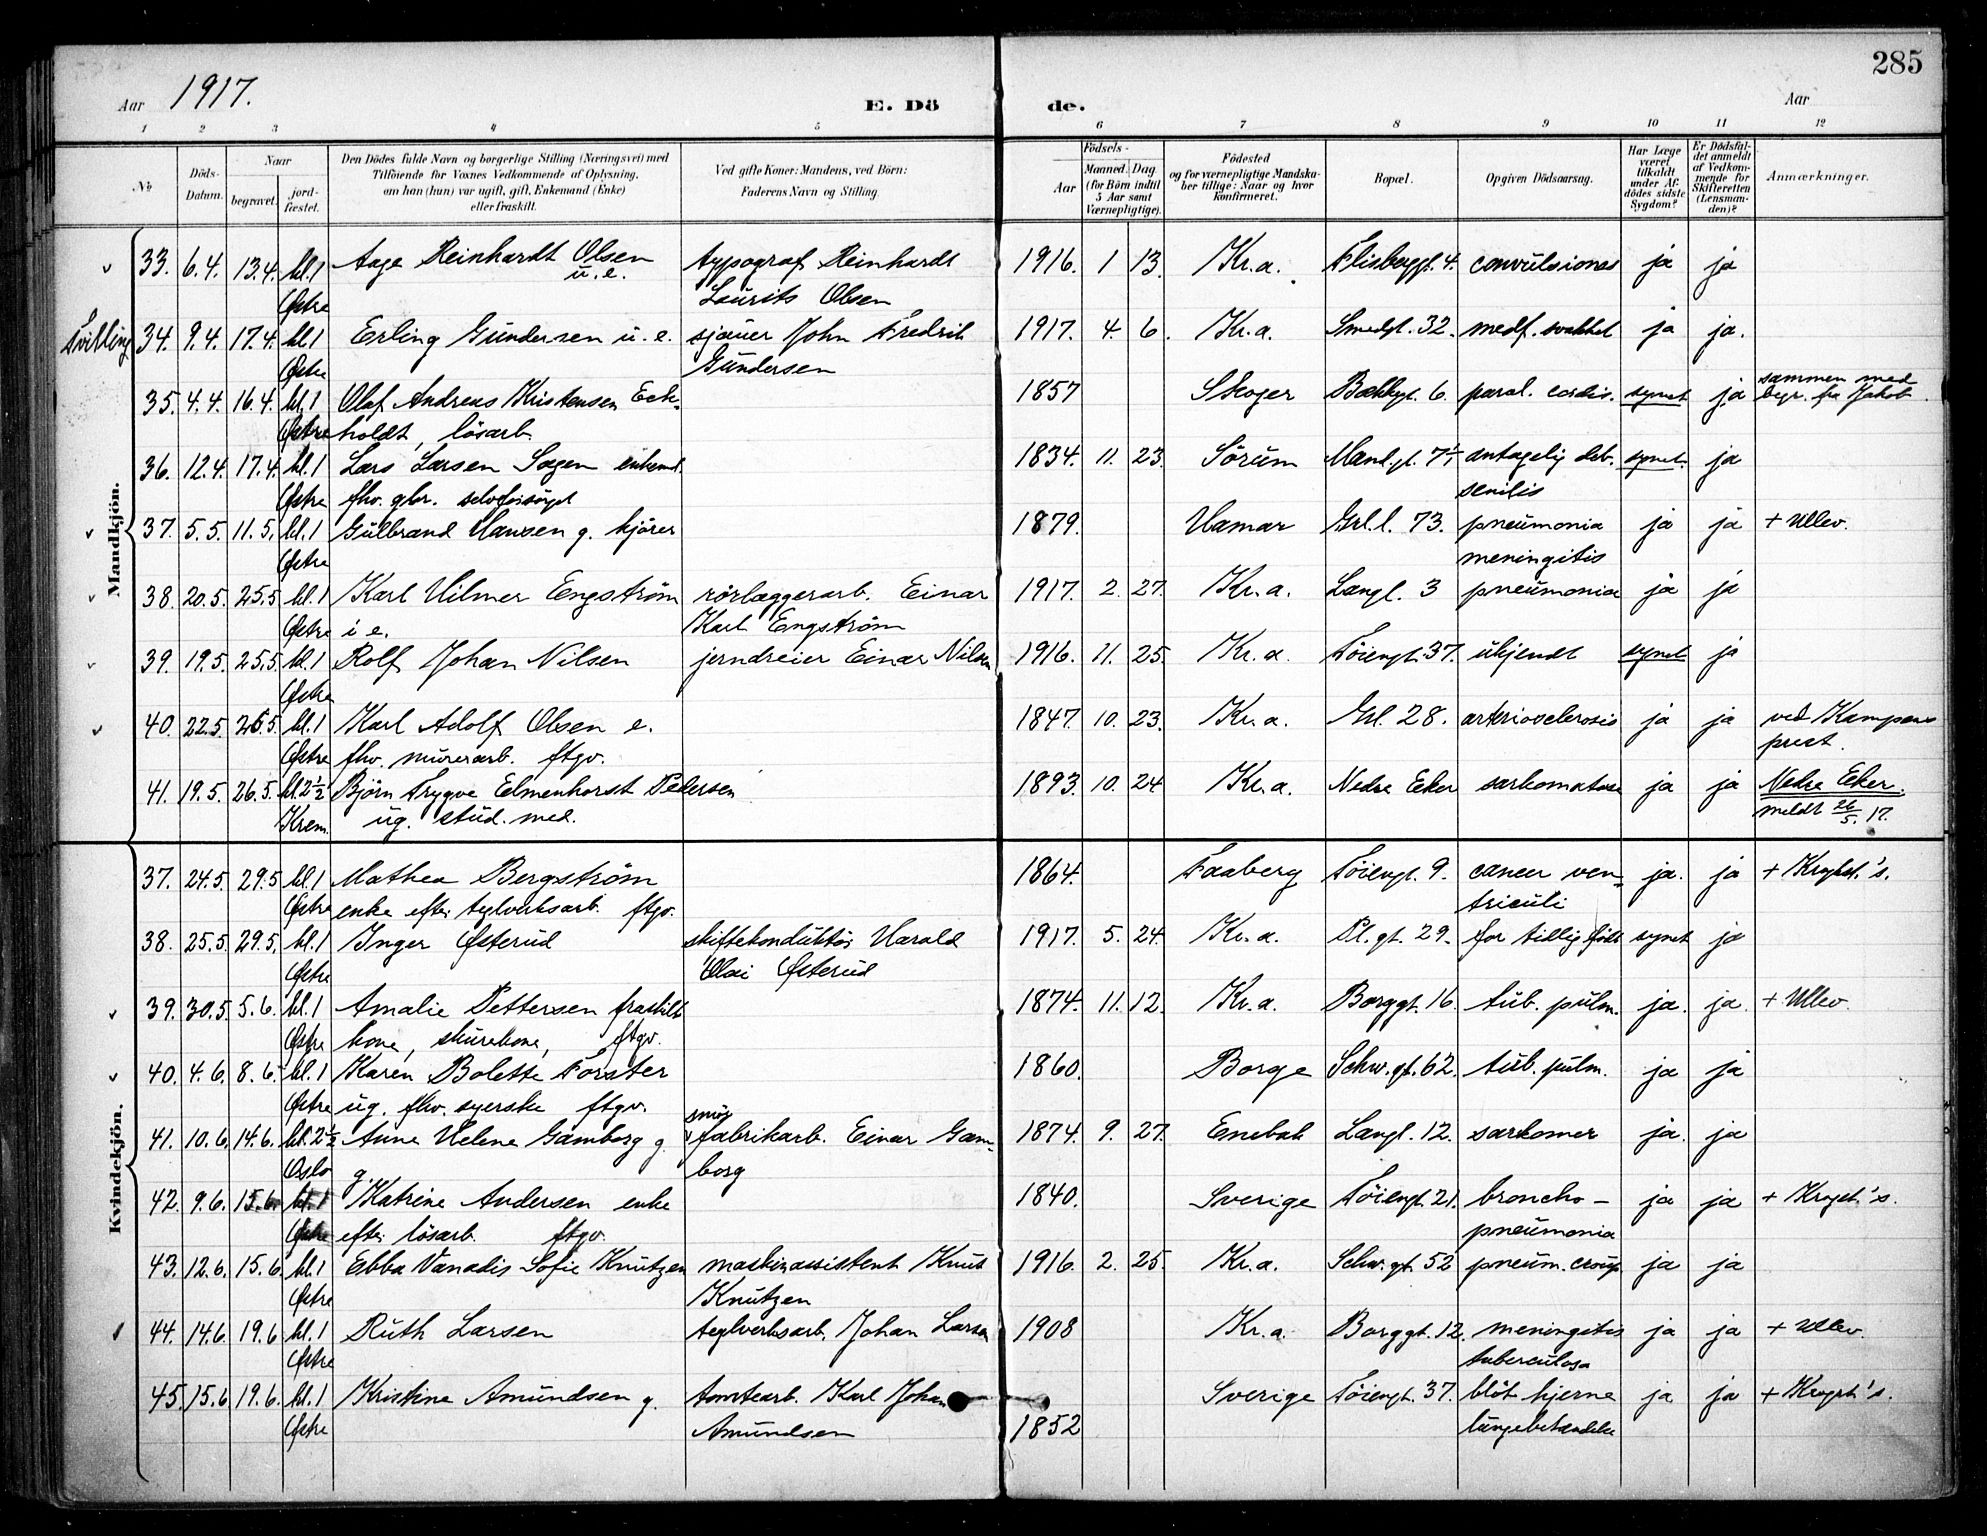 285
Aar 1917. E. Döde. Aar
1 2 3 4 5 6 7 8 9 10 11 12
No
Döds-Datum.
Naar begravet. jordfæstet.
Den Dödes fulde Navn og borgerlige Stilling (Næringsvei) med Tilföiende for Voxnes Vedkommende af Oplysning, om han (hun) var ugift, gift, Enkemand (Enke) eller fraskilt.
Ved gifte Koner: Mandens, ved Börn: Faderens Navn og Stilling.
Födsels- Aar Maaned. Dag (for Börn indtil 5 Aar samt Værnepligtige).
Födested og for værnepligtige Mandskaber tillige: Naar og hvor konfirmeret.
Bopæl.
Opgiven Dödsaarsag.
Har Læge været tilkaldt under Afdödes sidste Sygdom?
Er Dødsfaldet anmeldt af Vedkommende for Skifteretten (Lensmanden)?
Anmærkninger.
Mandkjön.
33. 6.4. 13.4. kl.1 Aage Reinhardt Olsen typograf Reinhardt 1916. 1 13. Kr.a. Flisberggt. 4. convulsiones ja ja
Østre u.e. Laurits Olsen
Tvilling 34. 9.4. 17.4. kl.1 Erling Gundersen u.e. sjauer John Fredrik 1917. 4. 6. Kr.a. Smedgt. 32. medf. svakhet ja ja.
Østre Gundersen
35. 4.4. 16.4. kl.1 Olaf Andreas Kristensen Eck- 1857 Skoger Bakkegt. 6. paral. cordis. synet ja sammen med
Østre holdt, lösarb. begr. fra Jakob.
36. 12.4. 17.4. kl.1 Lars Larsen Sagen enkemd. 1834. 11. 23. Sörum Mandgt. 7 antagelig deb. synet. ja
Østre fhv. gbr. selvforsörget senilis
37. 5.5. 11.5. kl.1 Gulbrand Hansen g. kjörer 1879. Hamar Grl.l. 73. pneumonia ja ja + Ullev.
Østre meningitis
38. 20.5. 25.5 kl.1 Karl Hilmer Engström rörlæggerarb. Einar 1917. 2. 27. Kr.a. Langl. 3 pneumonia ja ja
Østre i e. Karl Engström
39. 19.5. 25.5. kl.1 Rolf Johan Nilsen jerndreier Einar Nilsen 1916. 11. 25. Kr.a. Töiengt. 37. ukjendt synet ja
Østre
40. 22.5. 26.5. kl.1 Karl Adolf Olsen e. 1847. 10. 23. Kr.a. Grl. 28. arteriosclerosis ja ja ved Kampens
Østre fhv. murerarb. ftgv. prest.
41. 19.5. 26.5. kl.2½ Björn Trygve Eelmenhorst Pedersen 1893. 10. 24 Kr.a. Nedre Eeker sarkomatose ja ja Nedre Eeker.
Krem. ug. stud. med. meldt 26/5. 17.
Kvindekjön.
37. 24.5. 29.5 kl.1 Mathea Bergström 1864. Faaberg Töiengt. 9. cancer ven- ja. ja + Krohgst.'s.
Østre enke efter teglverksarb. ftgv. triculi
38. 25.5. 29.5. kl.1 Inger Østerud skiftekonduktör Harald 1917. 5. 24. Kr.a. Pl.gt. 29. for tidlig födt synet ja
Østre Olai Østerud
39. 30.5. 5.6. kl.1 Amalie Pettersen fraskilt 1874. 11. 12. Kr.a. Borggt. 16. tub. pulm. ja. ja. + Ullev.
Østre kone, skurekone, ftgv.
40. 4.6. 8.6. kl.1 Karen Bolette Forster 1860. Borge Schw.gt. 62. tub. pulm. ja ja
Østre ug. fhv. syerske ftgv.
41. 10.6. 14.6. kl.2½ Anne Helene Gamborg g. smörfabrikarb. Einar Gam- 1874. 9. 27. Enebak Langl. 12. sarkomer ja. ja
Oslo borg
42. 9.6. 15.6. kl.1 g. Katrine Andersen enke 1840. Sverige Töiengt. 21. broncho- ja ja + Krogst.'s.
Østre efter lösarb. ftgv. pneumonia
43. 12.6. 15.6. kl.1 Ebba Vanadis Sofie Knutzen maskinassistent Knut 1916. 2. 25. Kr.a. Schw.gt. 52 pneum. croup. ja ja
Østre Knutzen
44. 14.6. 19.6 kl.1 Ruth Larsen teglverksarb. Johan Larsen 1908 Kr.a. Borggt. 12. meningitis ja ja + Ullev.
Østre tuberculosa
45. 15.6 19.6. kl.1 Kristine Amundsen g. tomtearb. Karl Johan Sverige Töiengt. 37. blöt hjerne ja ja + Krogst.'s.
Østre Amundsen 1852 lungebetændelse